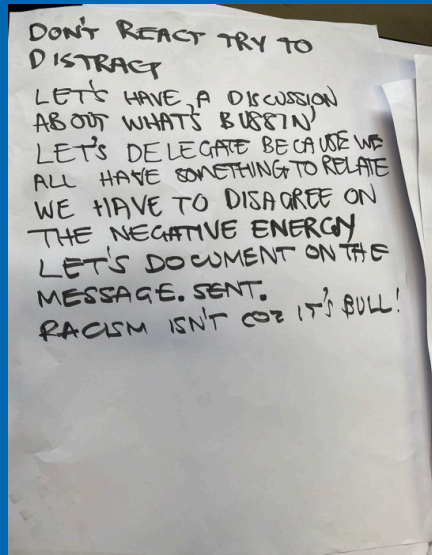 DON'T REACT TRY TO
DISTRACT
LET'S HAVE A DISCUSSION
ABOUT WHAT'S BUSSIN'
LET'S DELEGATE BECAUSE WE
ALL HAVE SOMETHING TO RELATE
WE HAVE TO DISAGREE ON
THE NEGATIVE ENERGY
LET'S DOCUMENT ON THE
MESSAGE. SENT.
RACISM ISN'T COZ IT'S BULL!